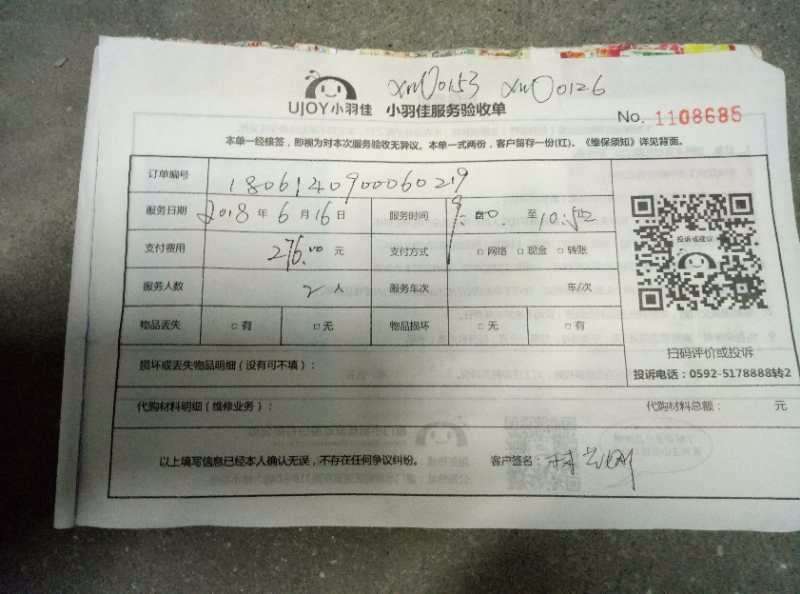 xm00153 xm00126
UJOY小羽佳 小羽佳服务验收单
No. 1108685
本单一经接签，即视为对本次服务验收无异议。本单一式两份，客户留存一份(红)。《维保须知》详见背面。
订单编号 1806140900060219
服务日期 2018 年 6 月 16 日 服务时间 9: 至 10:
支付费用 276.00 元 支付方式 □ 网络 □ 现金 □ 转账
投诉或建议
服务人数 2 人 服务车次 车/次
物品丢失 □ 有 □ 无 物品损坏 □ 无 □ 有
扫码评价或投诉
损坏或丢失物品明细（没有可不填）：
投诉电话：0592-5178888转2
代购材料明细（维修业务）： 代购材料总额： 元
以上填写信息已经本人确认无误，不存在任何争议纠纷。 客户签名：